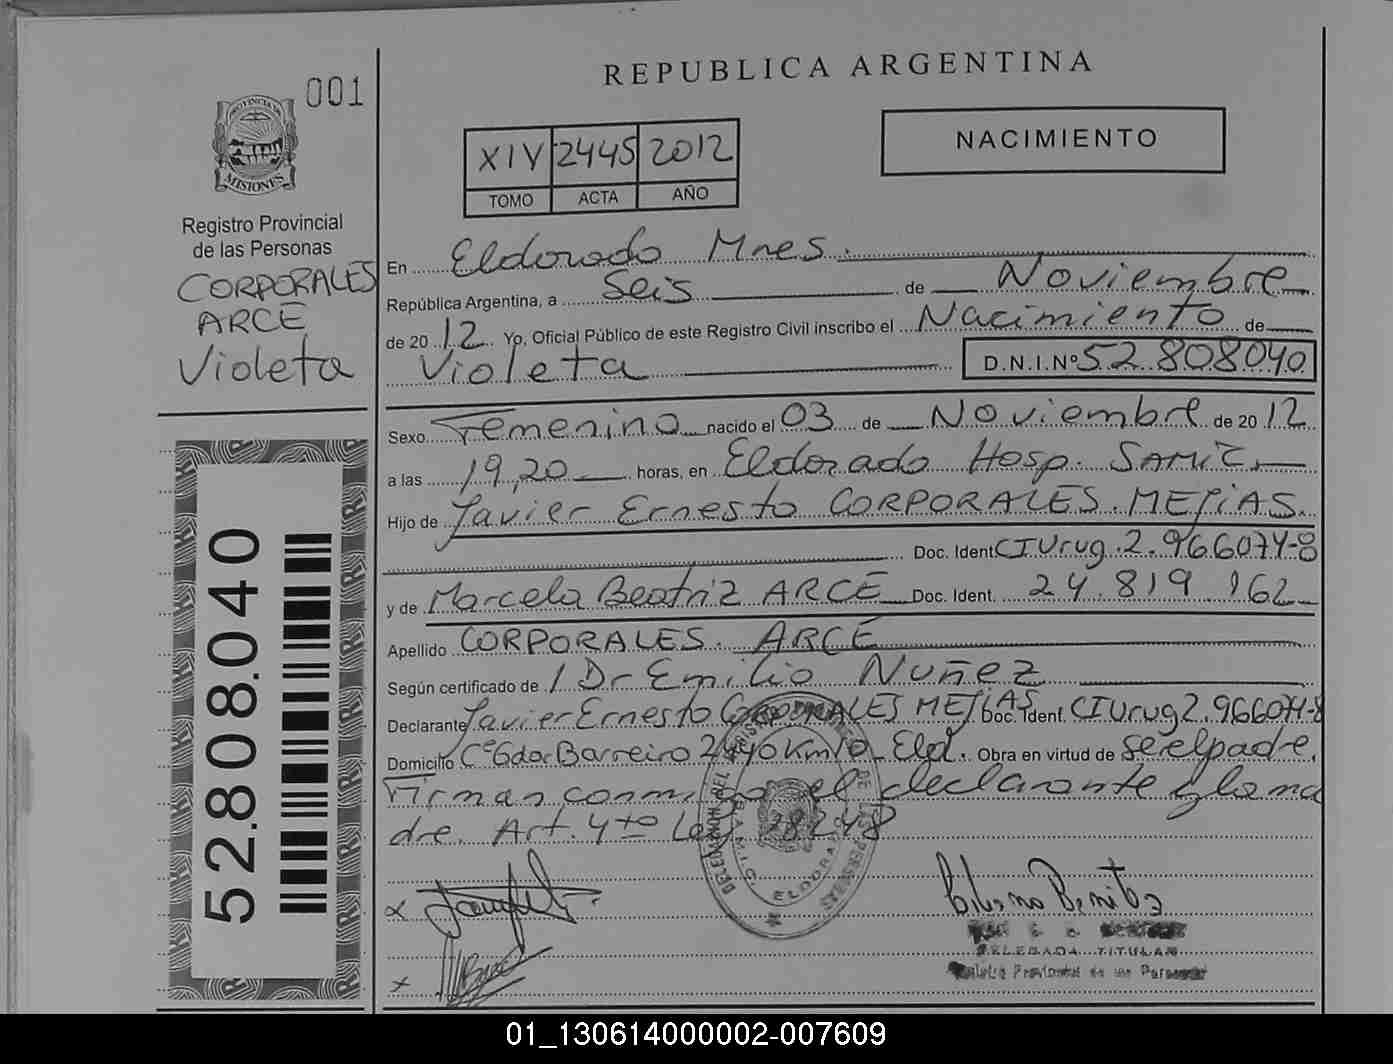 REPUBLICA ARGENTINA
001
PROVINCIA
MISIONES
Registro Provincial
de las Personas
CORPORALES
ARCE
Violeta
52.808.040
XIV 2445 2012
TOMO ACTA AÑO
NACIMIENTO
En Eldorado Mnes.
República Argentina, a Seis de Noviembre
de 2012 Yo, Oficial Público de este Registro Civil inscribo el Nacimiento de
Violeta D.N.I.Nº 52.808040
Sexo Femenino nacido el 03 de Noviembre de 2012
a las 19,20 horas, en Eldorado Hosp. SAMIC
Hijo de Javier Ernesto CORPORALES MEJIAS.
Doc. Ident. CI Urug. 2.966074-8
y de Marcela Beatriz ARCE Doc. Ident. 24.819.162
Apellido CORPORALES ARCE
Según certificado de Dr Emilio Nuñez
Declarante Javier Ernesto CORPORALES MEJIAS Doc. Ident. CI Urug 2.966074-8
Domicilio Cº Gdor Barreiro Km 10 Eld. Obra en virtud de ser el padre.
Firman conmigo el declarante y la ma
dre. Art. 4to Ley 28248
ELDORADO
DELEGADA TITULAR
01_130614000002-007609